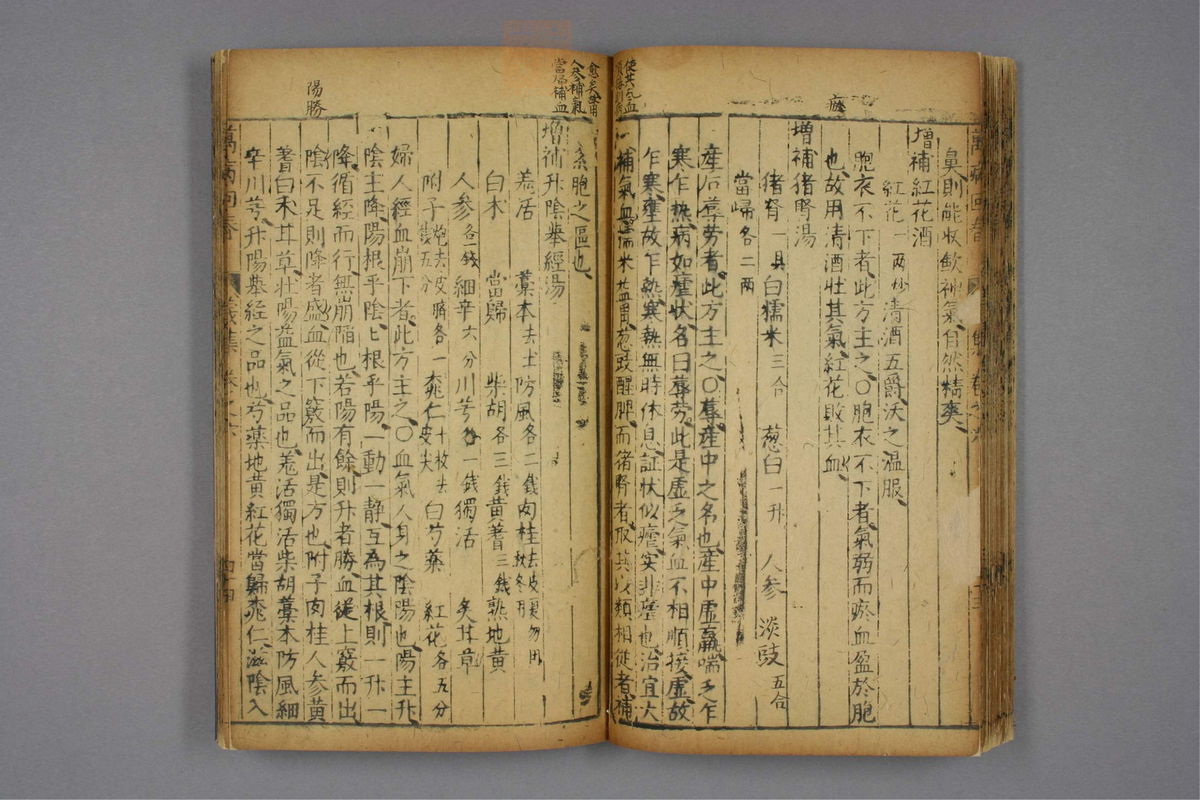 鼻則能收飲神氣自然精爽
增補紅花酒
紅花一兩炒清酒五爵沃之溫服
胞衣不下者此方主之○胞衣不下者氣弱而瘀血盈於胞
也故用清酒壯其氣紅花敗其血
增補猪腎湯
猪腎一具 白糯米三合 葱白一升 人參 淡豉五合
當歸各二兩
產后蓐勞者此方主之○蓐產中之名也產中虛羸喘乏乍
寒乍熱病如瘧狀名曰蓐勞此是虛乏氣血不相順接虛故
乍寒壅故乍熱寒熱無時休息証狀似瘧实非瘧也治宜大
補氣血 糯米益胃葱豉醒脾而猪腎者取其以類相從者補
系胞之區也
增補升陰舉經湯
羗活 藁本去土 防風各二錢 肉桂去皮夏勿用秋冬用
白术 當歸 柴胡各三錢 黄蓍三錢 熟地黄
人參各一錢 細辛六分 川芎各一錢 獨活 炙甘草
附子炮去皮臍各一錢五分 桃仁十枚去皮尖 白芍藥 紅花各五分
婦人經血崩下者此方主之○血氣人身之陰陽也陽主升
陰主降陽根乎陰匕根乎陽一動一静互為其根則一升一
降循經而行無崩陷也若陽有餘則升者勝血從上竅而出
陰不足則降者盛血從下竅而出是方也附子肉桂人參黄
蓍白术甘草壯陽益氣之品也羗活獨活柴胡藁本防風細
辛川芎升陽舉經之品也芍藥地黄紅花當歸桃仁滋陰入
陽勝